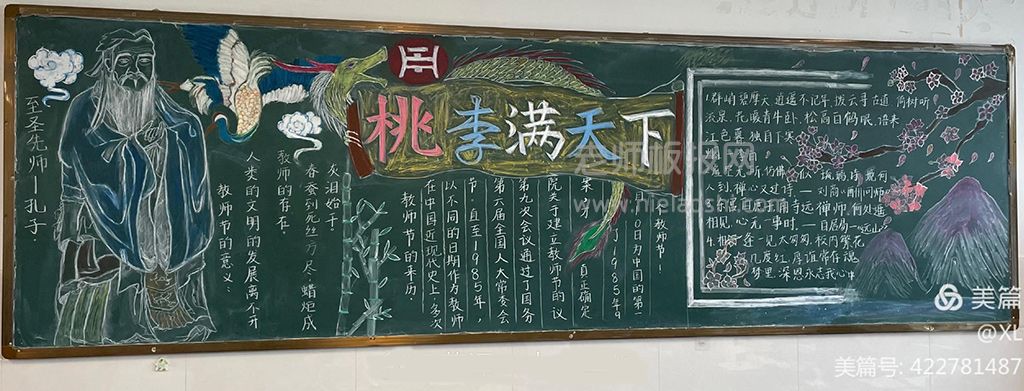 桃李满天下
至圣先师——孔子
教师节的意义:
人类的文明的发展离不开
教师的存在。
春蚕到死丝方尽,蜡炬成
灰泪始干
教师节的来历
在中国近现代史上,多次
以不同的日期作为教师
节。直至1985年,
第六届全国人大常委会
第九次会议通过了国务
院关于建立教师节的议
案,才真正确定
1985年9
10日为中国的第一
教师节!
群峭碧摩天,逍遥不记年。拨云寻古道,倚树听
流泉。花暖青牛卧,松高白鹤眠。语来
江色暮,独自下寒
人到,禅心又过诗。——刘商《酬问师》
远禅师,何处进
相见,心无一事时。——白居易《远山
相逢一见太匆匆,校内繁花
几度红。厚谊常存魂
梦里,深恩永志我心中
老师板报网
www.hielaoshi.com
美篇
@XL
美篇号: 422781487